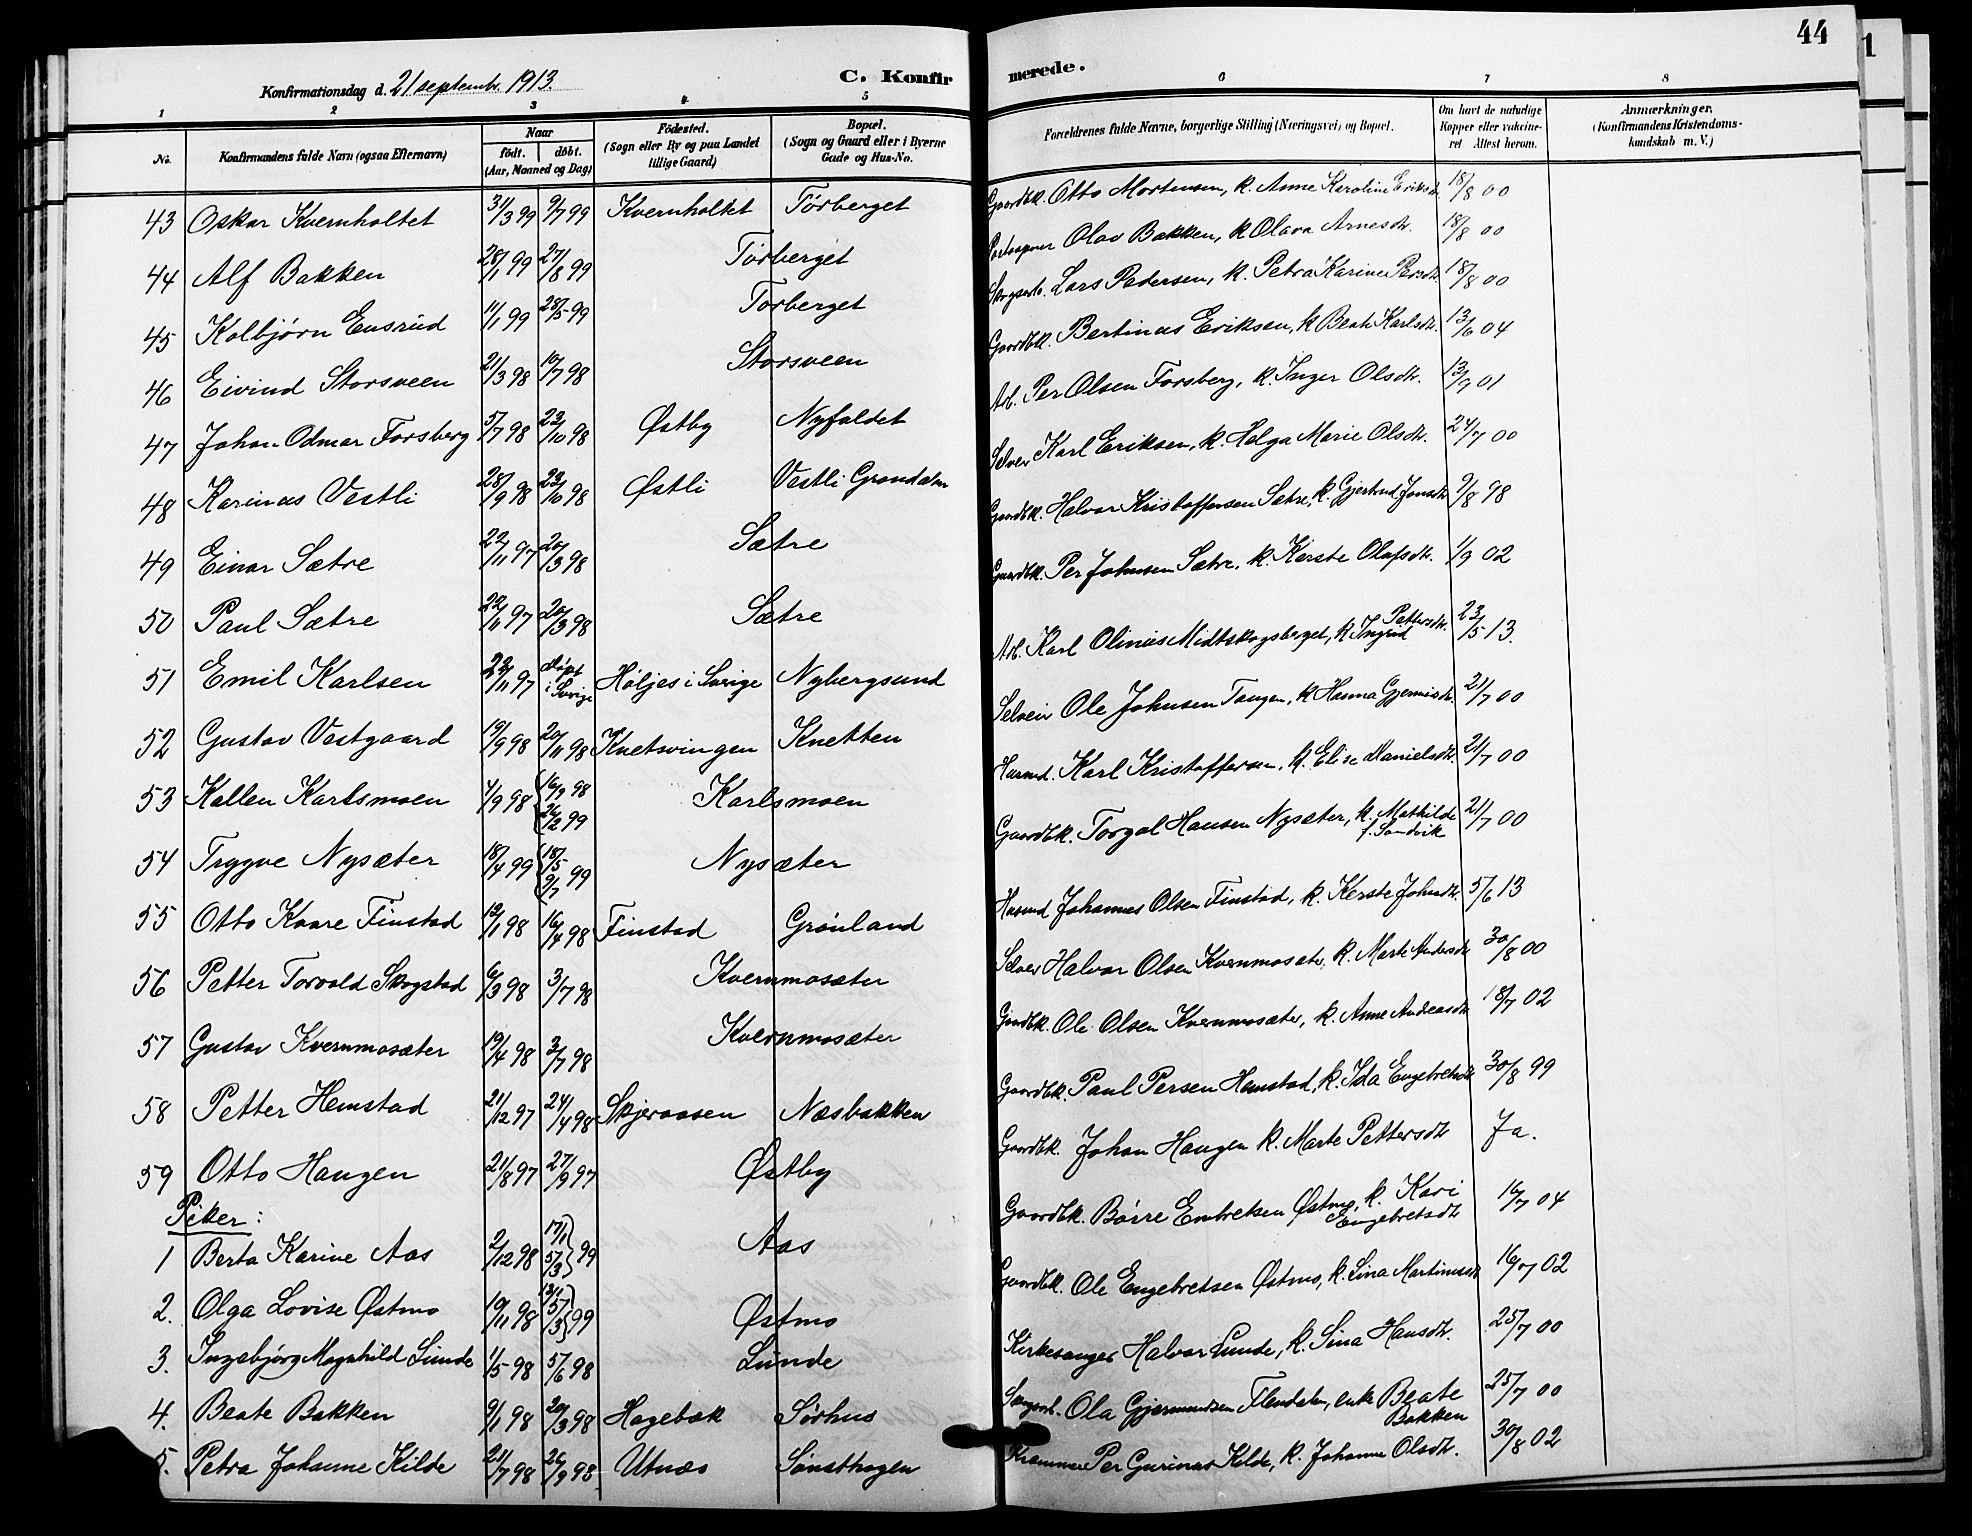 44
1
Konfirmationsdag d. 21 septembr. 1913.
C. Konfirmerede.
1 2 3 4 5 6 7 8
No. Konfirmandens fulde Navn (ogsaa Efternavn) Naar født. døbt. (Aar, Maaned og Dag) Fødested. (Sogn eller By og paa Landet tillige Gaard) Bopæl. (Sogn og Gaard eller i Byerne Gade og Hus-No.) Forældrenes fulde Navne, borgerlige Stilling (Næringsvei) og Bopæl. Om havt de naturlige Kopper eller vakcineret Attest herom. Anmærkninger. (Konfirmandens Kristendomskundskab m. V.)
43 Oskar Kvernholtet 31/3 99 9/7 99 Kvernholtet Törberget Gaardbk. Otto Mortensen, k. Anne Karoline Eriksdr. 18/8 00
44 Alf Bakken 28/1 99 27/8 99 Törberget Olav Bakken, k Olava Arnesdtr. 18/8 00
45 Kolbjørn Ensrud 11/1 99 28/5 99 Törberget Lars Pedersen, k. Petra Karine Persdtr. 18/8 00
46 Eivind Storsveen 21/3 98 10/7 98 Storsveen Gaardbk. Bertinus Eriksen, k Beate Karlsdtr. 13/6 04
47 Johan Odmar Forsberg 5/7 98 23/10 98 Østby Nyfaldet Arb. Per Olsen Forsberg, k. Inger Olsdtr. 13/9 01
48 Karinus Vestli 28/9 98 23/10 98 Østli Vestli Grøndalen Selveier Karl Eriksen, k. Helga Marie Olsdtr. 24/7 00
49 Einar Sætre 22/11 97 20/3 98 Sætre Gaardbk. Halvor Kristoffersen Sætre, k. Gjertrud Jonsdtr 9/8 98
50 Paul Sætre 22/11 97 20/3 98 Sætre Gaardbk. Per Johnsen Sætre, k. Kerste Olafsdtr. 1/9 02
51 Emil Karlsen 23/11 97 døpt i Sverige Höljes i Sverige Nybergsund Arb. Karl Olinus Midtskogsberget, k Ingrid Pettersdtr. 23/5 13.
52 Gustav Vestgaard 19/9 98 20/11 98 Knetsvingen Knetten Selveier Ole Johnsen Tangen, k Hanna 21/7 00
53 Hallen Karlsmoen 4/9 98 16/9 98 26/2 99 Karlsmoen Husmd. Karl Kristoffersen, k. Elise Danielsdtr. 21/7 00
54 Trygve Nysæter 18/4 99 18/5 9/7 99 Nysæter Gaardbk. Torgal Hansen Nysæter, k. Mathilde f. Sandvik 21/7 00
55 Otto Kaare Finstad 12/1 98 16/4 98 Finstad Grønland Husmd Johannes Olsen Finstad, k. Kerste Johnsdtr. 5/6 13
56 Petter Torvald Skogstad 6/3 98 3/7 98 Kvernmosæter Selveier Halvor Olsen Kvernmosæter, k. Marte Andersdtr 30/8 00
57 Gustav Kvernmosæter 19/4 98 3/7 98 Kvernmosæter Gaardbk. Ole Olsen Kvernmosæter, k. Anne Andreasdtr 18/7 02
58 Petter Hemstad 21/12 97 24/4 98 Skjeraasen Næsbakken Gaardbk. Paul Persen Hemstad, k. Ida Engebretsdtr 30/8 99
59 Otto Haugen 21/8 97 27/9 97 Østby Gaardbk. Johan Haugen k. Marte Pettersdtr Ja.
Piker:
1 Berta Karine Aas 2/12 98 17/1 5/3 99 Aas Gaardbk. Börre Embretsen Østmo, k. Kari Engebretsdtr 16/7 04
2. Olga Lovise Østmo 19/11 98 13/1 5/3 99 Østmo Gaardbk. Ole Engebretsen Østmo, k. Lina Martinusdtr 16/7 02
3. Ingebjørg Magnhild Lunde 1/5 98 5/6 98 Lunde Kirkesanger Halvor Lunde, k. Sina Hansdtr. 25/7 00
4. Beate Bakken 9/1 98 20/3 98 Hagebæk Sørhus Ola Gjermundsen Flendalen, enke Beate Bakken 25/7 00
5. Petra Johanne Kilde 21/7 98 26/9 98 Utnæs Sønsthagen Kræmmer Per Gurinus Kilde, k. Johanne Olsdtr. 30/8 02